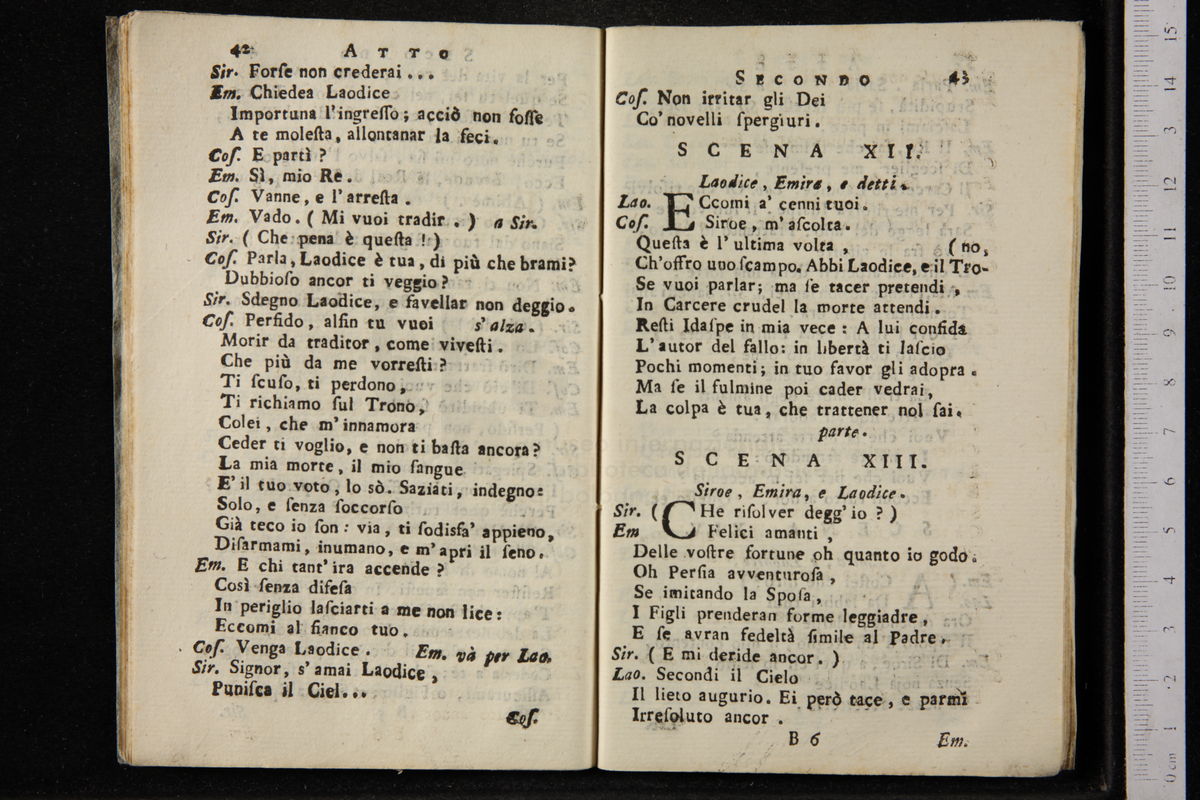 42 ATTO
Sir. Forſe non crederai...
Em. Chiedea Laodice
Importuna l'ingreſſo; acciò non foſſe
A te moleſta, allontanar la feci.
Coſ. E partì?
Em. Sì, mio Re.
Coſ. Vanne, e l'arreſta.
Em. Vado. (Mi vuoi tradir.) a Sir.
Sir. (Che pena è queſta!)
Coſ. Parla, Laodice è tua, di più che brami?
Dubbioſo ancor ti veggio?
Sir. Sdegno Laodice, e favellar non deggio.
Coſ. Perfido, alfin tu vuoi s'alza.
Morir da traditor, come viveſti.
Che più da me vorreſti?
Ti ſcuſo, ti perdono,
Ti richiamo ſul Trono,
Colei, che m'innamora
Ceder ti voglio, e non ti baſta ancora?
La mia morte, il mio ſangue
E' il tuo voto, lo sò. Saziati, indegno:
Solo, e ſenza ſoccorſo
Già teco io ſon: via, ti ſodisfa' appieno,
Diſarmami, inumano, e m'apri il ſeno.
Em. E chi tant'ira accende?
Così ſenza difeſa
In periglio laſciarti a me non lice:
Eccomi al fianco tuo.
Coſ. Venga Laodice. Em. và per Lao.
Sir. Signor, s'amai Laodice,
Puniſca il Ciel...
Coſ.
SECONDO 43
Coſ. Non irritar gli Dei
Co' novelli ſpergiuri.
SCENA XII.
Laodice, Emira, e detti.
Lao. ECcomi a' cenni tuoi.
Coſ. Siroe, m'aſcolta.
Queſta è l'ultima volta, (no,
Ch'offro uno ſcampo. Abbi Laodice, e il Tro-
Se vuoi parlar; ma ſe tacer pretendi,
In Carcere crudel la morte attendi.
Reſti Idaſpe in mia vece: A lui confida
L'autor del fallo: in libertà ti laſcio
Pochi momenti; in tuo favor gli adopra.
Ma ſe il fulmine poi cader vedrai,
La colpa è tua, che trattener nol ſai.
parte.
SCENA XIII.
Siroe, Emira, e Laodice.
Sir. (CHe riſolver degg'io?)
Em Felici amanti,
Delle voſtre fortune oh quanto io godo.
Oh Perſia avventuroſa,
Se imitando la Spoſa,
I Figli prenderan forme leggiadre,
E ſe avran fedeltà ſimile al Padre.
Sir. (E mi deride ancor.)
Lao. Secondi il Cielo
Il lieto augurio. Ei però tace, e parmi
Irreſoluto ancor.
B 6 Em.